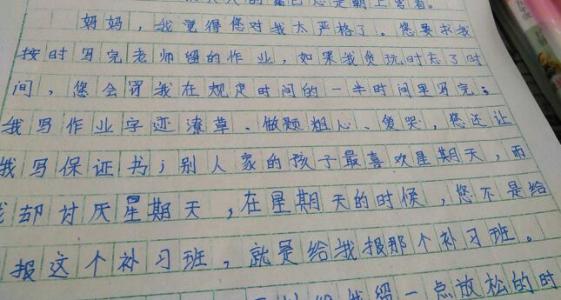 妈妈，我觉得您对我太严格了。您要求我
按时写完老师留的作业，如果我贪玩时去了时
间，您会罚我在规定时间的一半时间里写完；
我写作业字迹潦草、做题粗心、爱哭，您还让
我写保证书；别人家的孩子最喜欢星期天，而
我却讨厌星期天，在星期天的时候，您不是给
报这个补习班，就是给我报那个补习班。
给我留一点放松的时